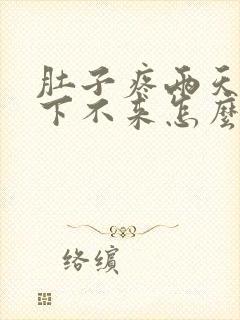 肚子疼两天
下不来怎麽
络缤